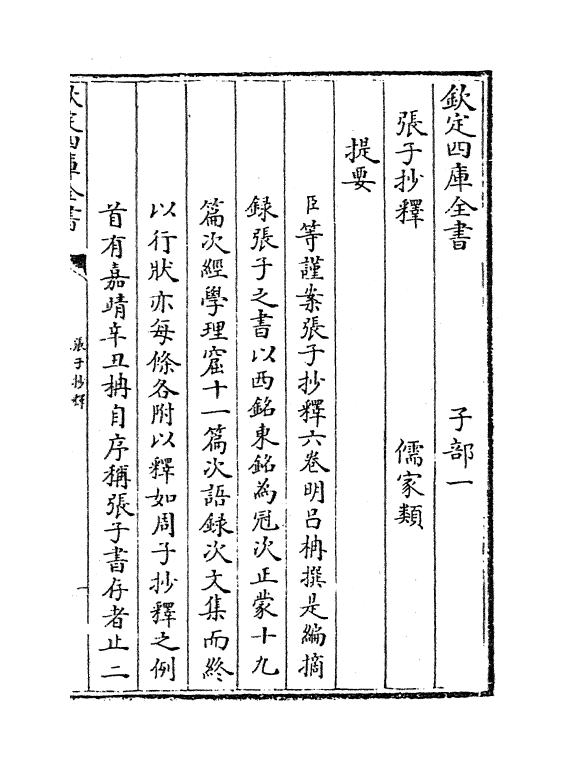 欽定四庫全書　子部一
張子抄釋　儒家類
提要
臣等謹案張子抄釋六卷明吕柟撰是編摘
録張子之書以西銘東銘為冠次正蒙十九
篇次經學理窟十一篇次語録次文集而終
以行狀亦每條各附以釋如周子抄釋之例
首有嘉靖辛丑柟自序稱張子書存者止二
欽定四庫全書
張子抄釋
一